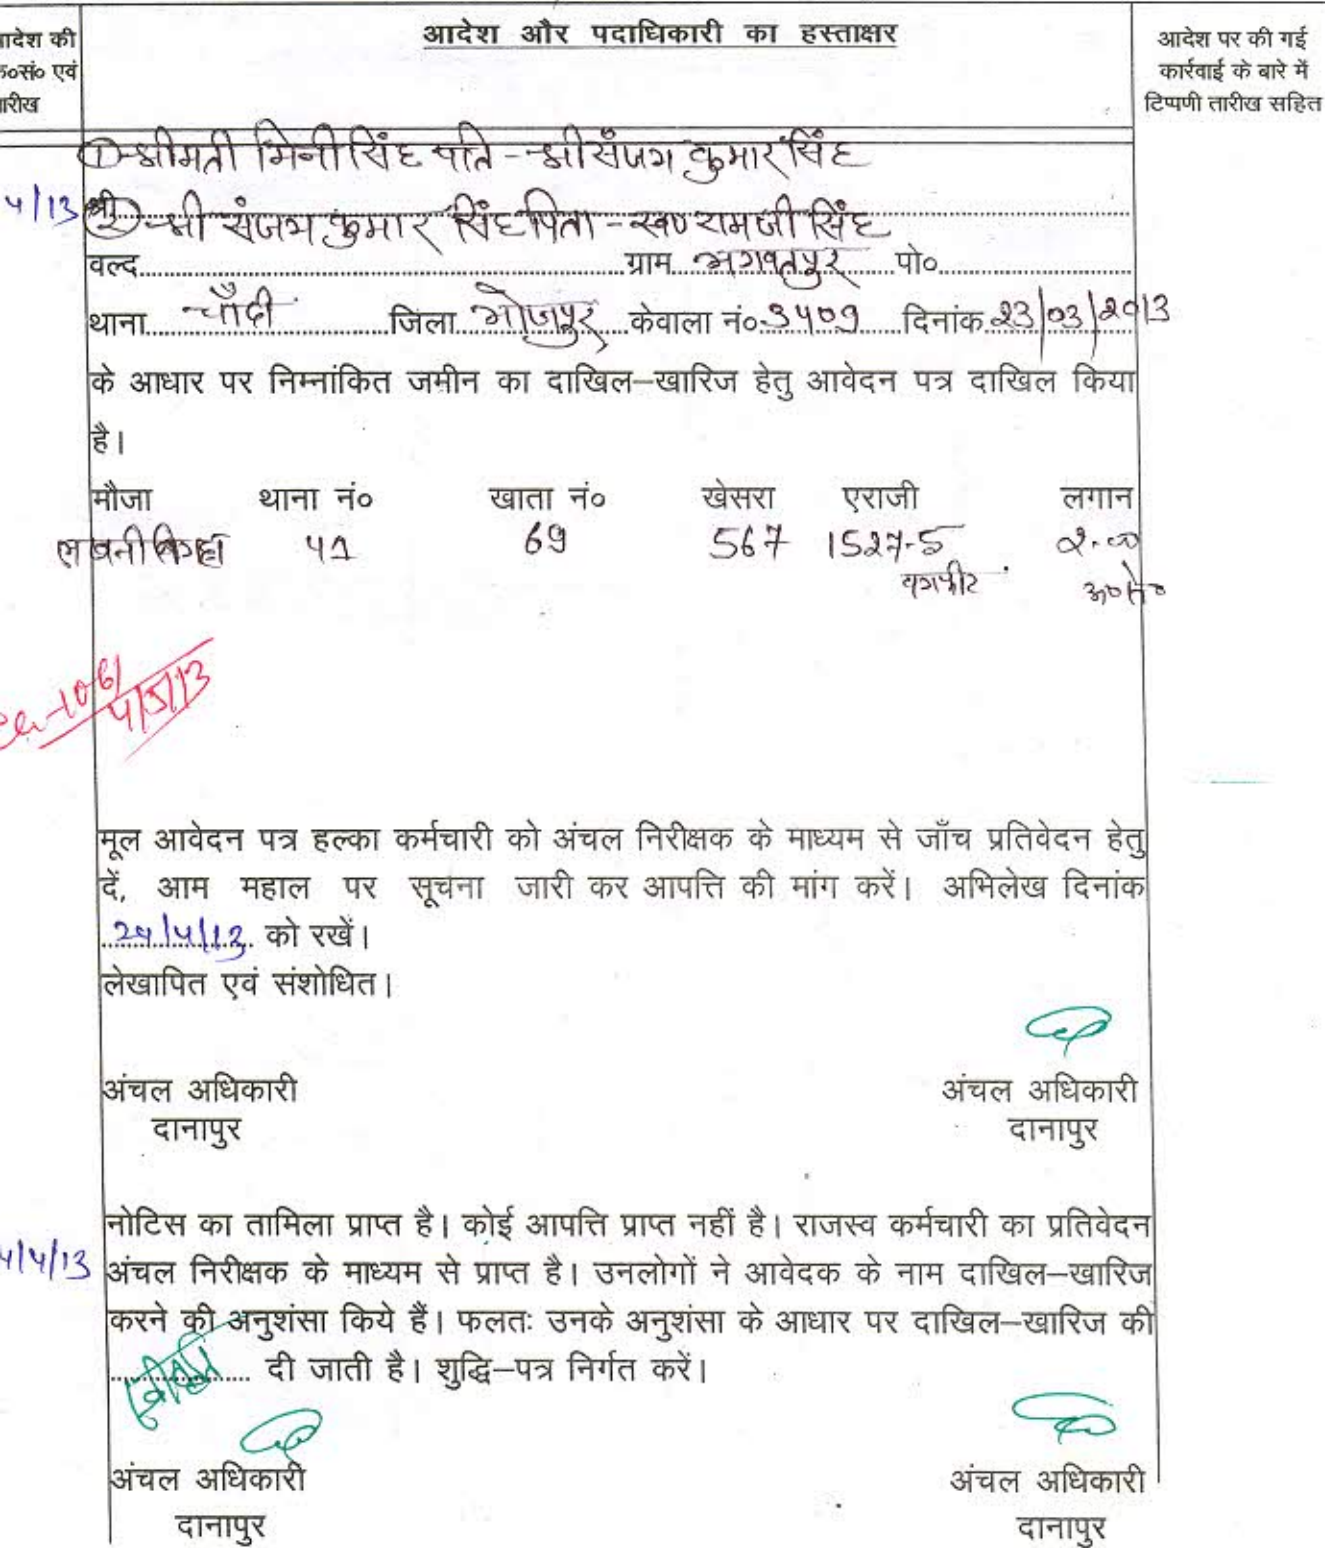 आदेश की
क०सं० एवं
तारीख
आदेश और पदाधिकारी का हस्ताक्षर
आदेश पर की गई
कार्रवाई के बारे में
टिप्पणी तारीख सहित
①-श्रीमती मिनी सिंह पति - श्री संजय कुमार सिंह
4/13 श्री ②-श्री संजय कुमार सिंह पिता - स्व० रामजी सिंह
वल्द.......... ग्राम भगवतपुर पो०..........
थाना चाँदी जिला भोजपुर केवाला नं० 3409 दिनांक 23/03/2013
के आधार पर निम्नांकित जमीन का दाखिल–खारिज हेतु आवेदन पत्र दाखिल किया
है।
मौजा थाना नं० खाता नं० खेसरा एराजी लगान
लखनी बिगहा 41 69 567 1527.5 2.00
वर्गफीट
4/5/13
मूल आवेदन पत्र हल्का कर्मचारी को अंचल निरीक्षक के माध्यम से जाँच प्रतिवेदन हेतु
दें, आम महाल पर सूचना जारी कर आपत्ति की मांग करें। अभिलेख दिनांक
24/4/13 को रखें।
लेखापित एवं संशोधित।
अंचल अधिकारी अंचल अधिकारी
दानापुर दानापुर
नोटिस का तामिला प्राप्त है। कोई आपत्ति प्राप्त नहीं है। राजस्व कर्मचारी का प्रतिवेदन
4/4/13 अंचल निरीक्षक के माध्यम से प्राप्त है। उनलोगों ने आवेदक के नाम दाखिल–खारिज
करने की अनुशंसा किये हैं। फलतः उनके अनुशंसा के आधार पर दाखिल–खारिज की
स्वीकृति दी जाती है। शुद्धि–पत्र निर्गत करें।
अंचल अधिकारी अंचल अधिकारी
दानापुर दानापुर